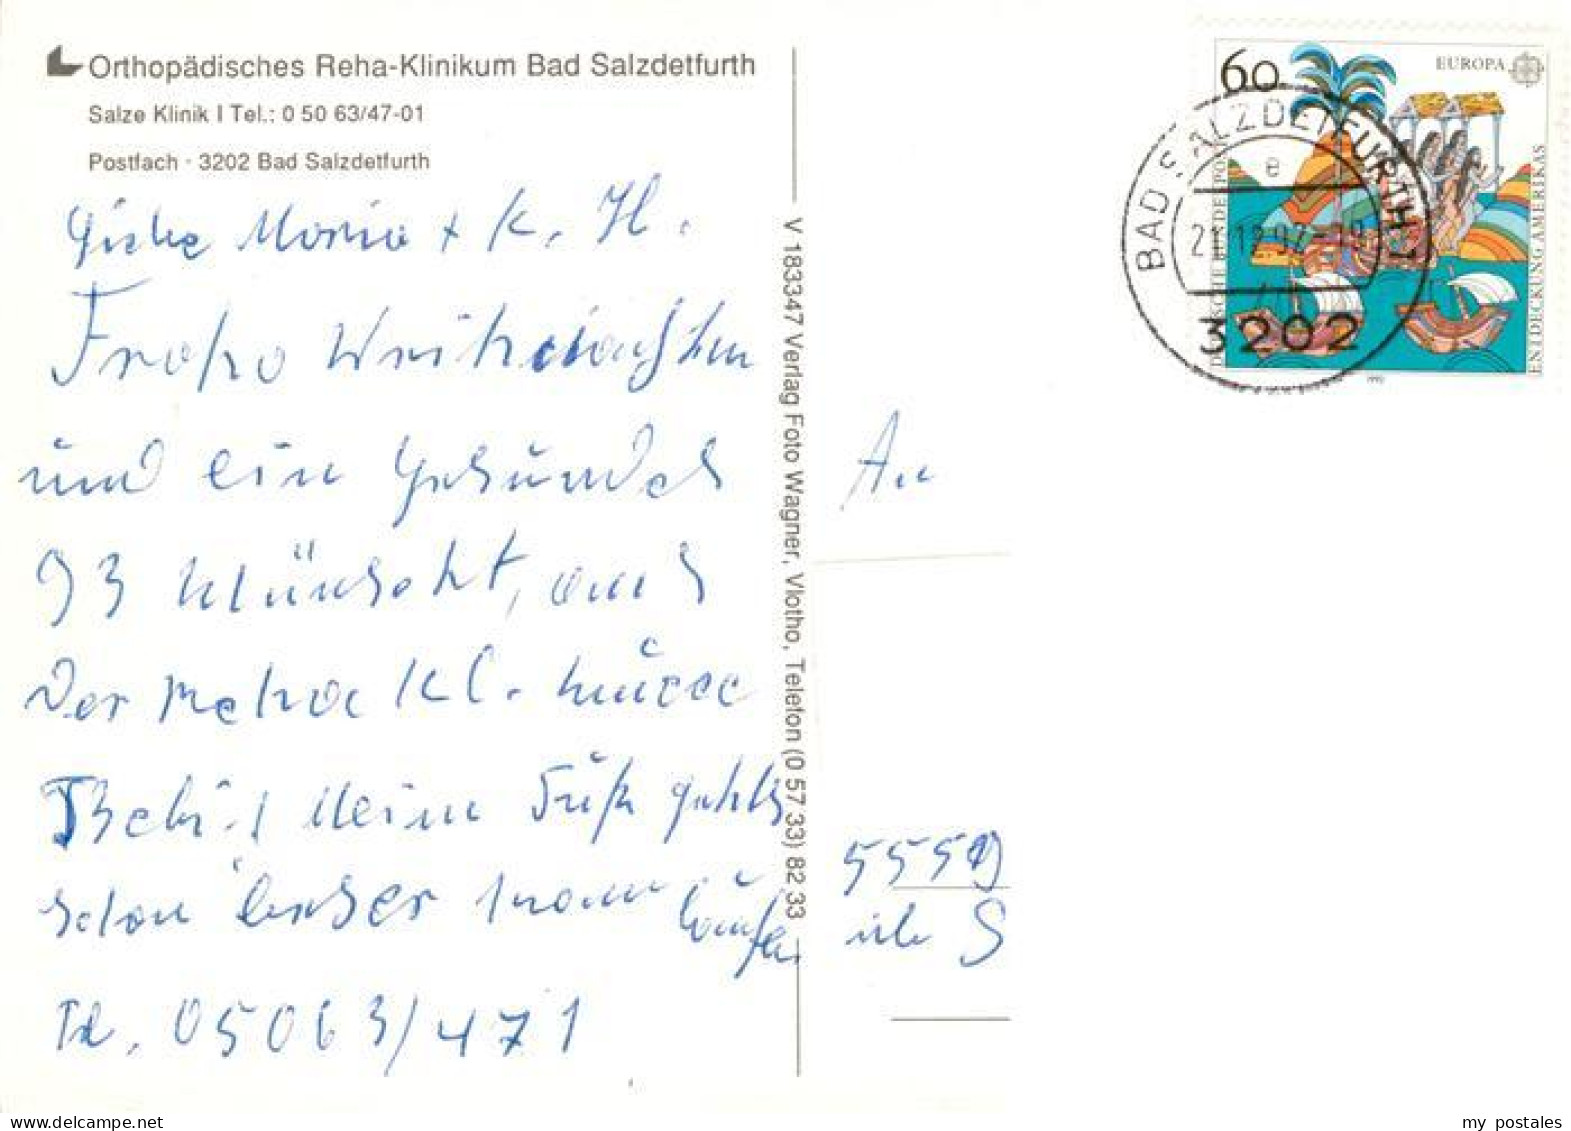 Orthopädisches Reha-Klinikum Bad Salzdetfurth
Salze Klinik I Tel.: 0 50 63/47-01
Postfach · 3202 Bad Salzdetfurth
Maria + K. H.
Froho Weihnachten
und ein gesundes
93 wünscht, aus
Der Reha Kl.
mein Fuß geht
schon besser
Tel. 05063/471
V 183347 Verlag Foto Wagner, Vlotho, Telefon (0 57 33) 82 33
60
EUROPA
DEUTSCHE BUNDESPOST
ENTDECKUNG AMERIKAS
1992
BAD SALZDETFURTH 1
e
3202
An
5559
my postales